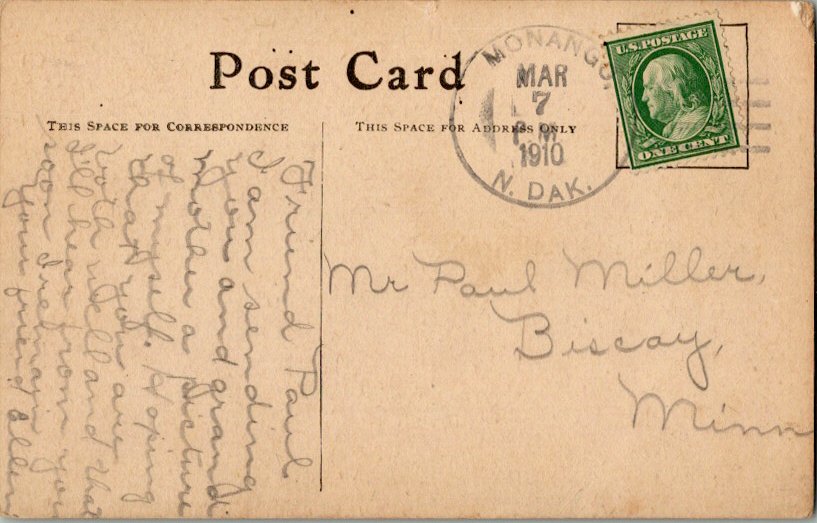 Post Card
THIS SPACE FOR CORRESPONDENCE
THIS SPACE FOR ADDRESS ONLY
MONANGO,
MAR
7
P.M.
1910
N. DAK.
U.S. POSTAGE
ONE CENT
Mr Paul Miller,
Biscay,
Minn
Friend Paul
I am sending
you and grand
mother a picture
of myself. Hoping
that you are
both well and that
I'll hear from you
soon I remain
your friend Ellen